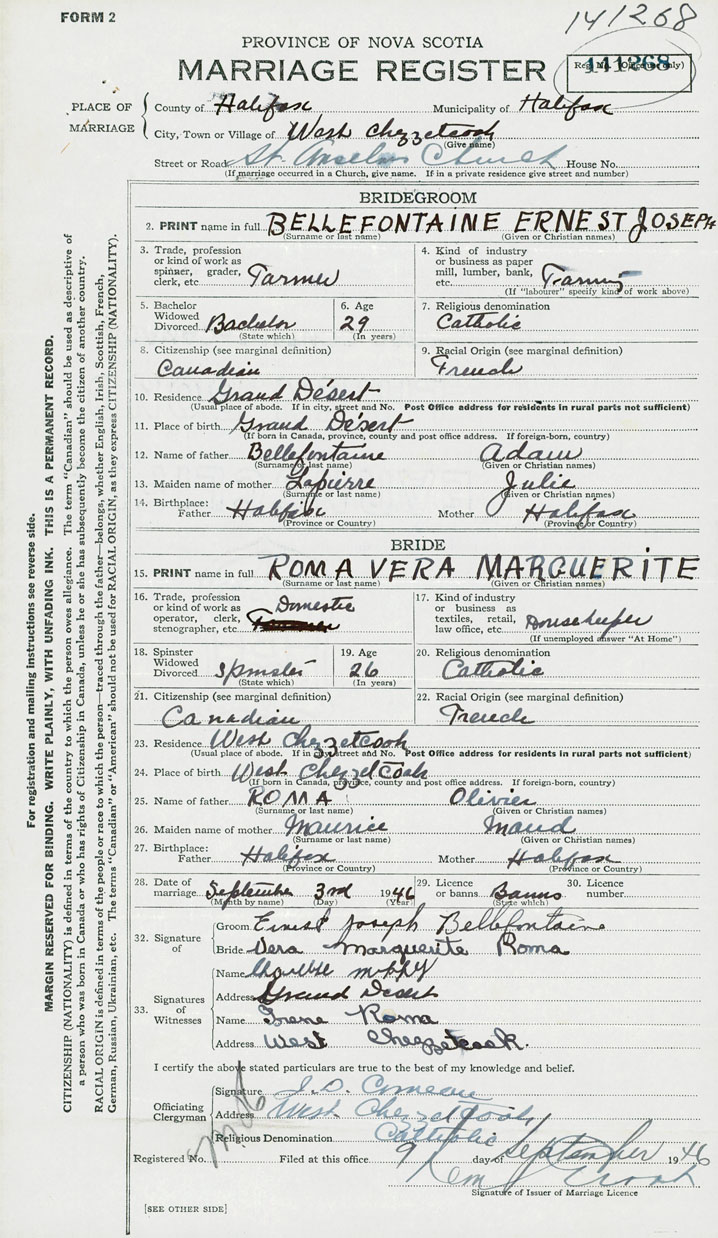 FORM 2
141268
PROVINCE OF NOVA SCOTIA
MARRIAGE REGISTER
Reg. No. (Office use only)
141268
PLACE OF MARRIAGE
County of Halifax Municipality of Halifax
City, Town or Village of West Chezzetcook
(Give name)
Street or Road St. Anselm Church House No.
(If marriage occurred in a Church, give name. If in a private residence give street and number)
BRIDEGROOM
2. PRINT name in full BELLEFONTAINE ERNEST JOSEPH
(Surname or last name) (Given or Christian names)
3. Trade, profession or kind of work as spinner, grader, clerk, etc. Farmer
4. Kind of industry or business as paper mill, lumber, bank, etc. Farming
(If "labourer" specify kind of work above)
5. Bachelor Widowed Divorced Bachelor
(State which)
6. Age 29
(In years)
7. Religious denomination
Catholic
8. Citizenship (see marginal definition)
Canadian
9. Racial Origin (see marginal definition)
French
10. Residence Grand Désert
(Usual place of abode. If in city, street and No. Post Office address for residents in rural parts not sufficient)
11. Place of birth Grand Désert
(If born in Canada, province, county and post office address. If foreign-born, country)
12. Name of father Bellefontaine Adam
(Surname or last name) (Given or Christian names)
13. Maiden name of mother Lapierre Julie
(Surname or last name) (Given or Christian names)
14. Birthplace: Father Halifax Mother Halifax
(Province or Country) (Province or Country)
BRIDE
15. PRINT name in full ROMA VERA MARGUERITE
(Surname or last name) (Given or Christian names)
16. Trade, profession or kind of work as operator, clerk, stenographer, etc. Domestic
17. Kind of industry or business as textiles, retail, law office, etc. Housekeeper
(If unemployed answer "At Home")
18. Spinster Widowed Divorced Spinster
(State which)
19. Age 26
(In years)
20. Religious denomination
Catholic
21. Citizenship (see marginal definition)
Canadian
22. Racial Origin (see marginal definition)
French
23. Residence West Chezzetcook
(Usual place of abode. If in city, street and No. Post Office address for residents in rural parts not sufficient)
24. Place of birth West Chezzetcook
(If born in Canada, province, county and post office address. If foreign-born, country)
25. Name of father ROMA Olivier
(Surname or last name) (Given or Christian names)
26. Maiden name of mother Maurice Maud
(Surname or last name) (Given or Christian names)
27. Birthplace: Father Halifax Mother Halifax
(Province or Country) (Province or Country)
28. Date of marriage September 3rd 1946
(Month by name) (Day) (Year)
29. Licence or banns Banns
(State which)
30. Licence number
32. Signature of
Groom Ernest Joseph Bellefontaine
Bride Vera Marguerite Roma
33. Signatures of Witnesses
Name
Address Grand Desert
Name Irene Roma
Address West Chezzetcook.
I certify the above stated particulars are true to the best of my knowledge and belief.
Officiating Clergyman
Signature J. D. Comeau
Address West Chezzetcook
Religious Denomination Catholic
Registered No. Filed at this office 9 day of September 1946
Signature of Issuer of Marriage Licence
[SEE OTHER SIDE]
For registration and mailing instructions see reverse side.
MARGIN RESERVED FOR BINDING. WRITE PLAINLY, WITH UNFADING INK. THIS IS A PERMANENT RECORD.
CITIZENSHIP (NATIONALITY) is defined in terms of the country to which the person owes allegiance. The term "Canadian" should be used as descriptive of
a person who was born in Canada or who has rights of Citizenship in Canada, unless he or she has subsequently become the citizen of another country.
RACIAL ORIGIN is defined in terms of the people or race to which the person—traced through the father—belongs, whether English, Irish, Scottish, French,
German, Russian, Ukrainian, etc. The terms "Canadian" or "American" should not be used for RACIAL ORIGIN, as they express CITIZENSHIP (NATIONALITY).